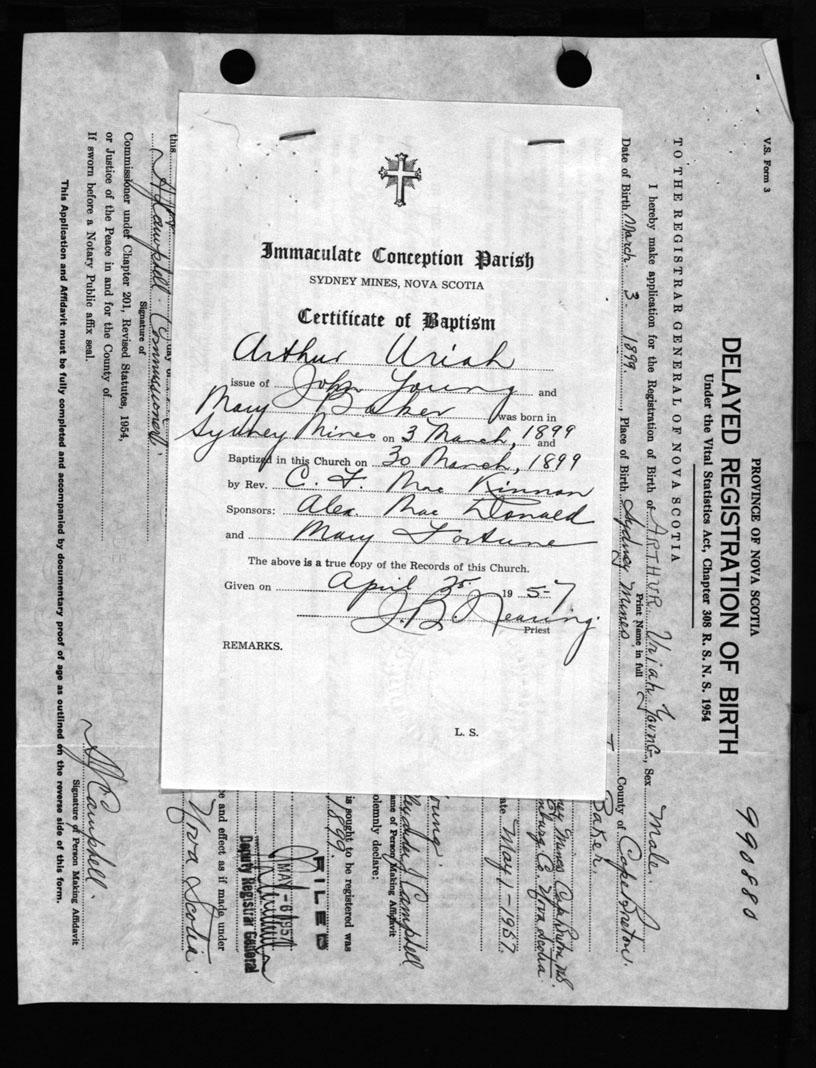 Immaculate Conception Parish
SYDNEY MINES, NOVA SCOTIA
Certificate of Baptism
Arthur Uriah
issue of John Young and
Mary Baker was born in
Sydney Mines on 3 March, 1899 and
Baptized in this Church on 30 March, 1899
by Rev. C. F. Mac Kinnon
Sponsors: Alex. Mac Donald
and Mary Fortune
The above is a true copy of the Records of this Church.
Given on April 25 1957
J. B. Nearing
Priest
REMARKS.
L. S.
V.S. Form 3
990880
PROVINCE OF NOVA SCOTIA
DELAYED REGISTRATION OF BIRTH
Under the Vital Statistics Act, Chapter 308 R. S. N. S. 1954
TO THE REGISTRAR GENERAL OF NOVA SCOTIA
I hereby make application for the Registration of Birth of ARTHUR Uriah Young, Sex Male.
Print Name in full
Date of Birth March 3. 1899., Place of Birth Sydney Mines. County of Cape Breton.
Baker.
Mines Cape Breton N.S.
Co. Nova Scotia
May 1 - 1957.
Young.
J Campbell
ame of Person Making Affidavit
olemnly declare:
is sought to be registered was
1899.
e and effect as if made under
FILED
MAY - 6 1957
Deputy Registrar General
Nova Scotia.
this day of
Campbell. (Commissioner).
Signature of
Commissioner under Chapter 201, Revised Statutes, 1954,
or Justice of the Peace in and for the County of
If sworn before a Notary Public affix seal.
Campbell.
Signature of Person Making Affidavit
This Application and Affidavit must be fully completed and accompanied by documentary proof of age as outlined on the reverse side of this form.